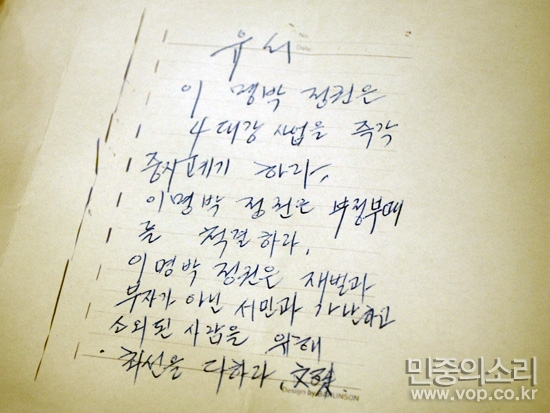 No.
Date.
유 서
이 명박 정권은
4대강 사업을 즉각
중지 폐기 하라.
이명박 정권은 부정부패
를 척결하라.
이명박 정권은 재벌과
부자가 아닌 서민과 가난하고
소외된 사람을 위해
최선을 다하라 文殊.
Design by
민중의소리
www.vop.co.kr